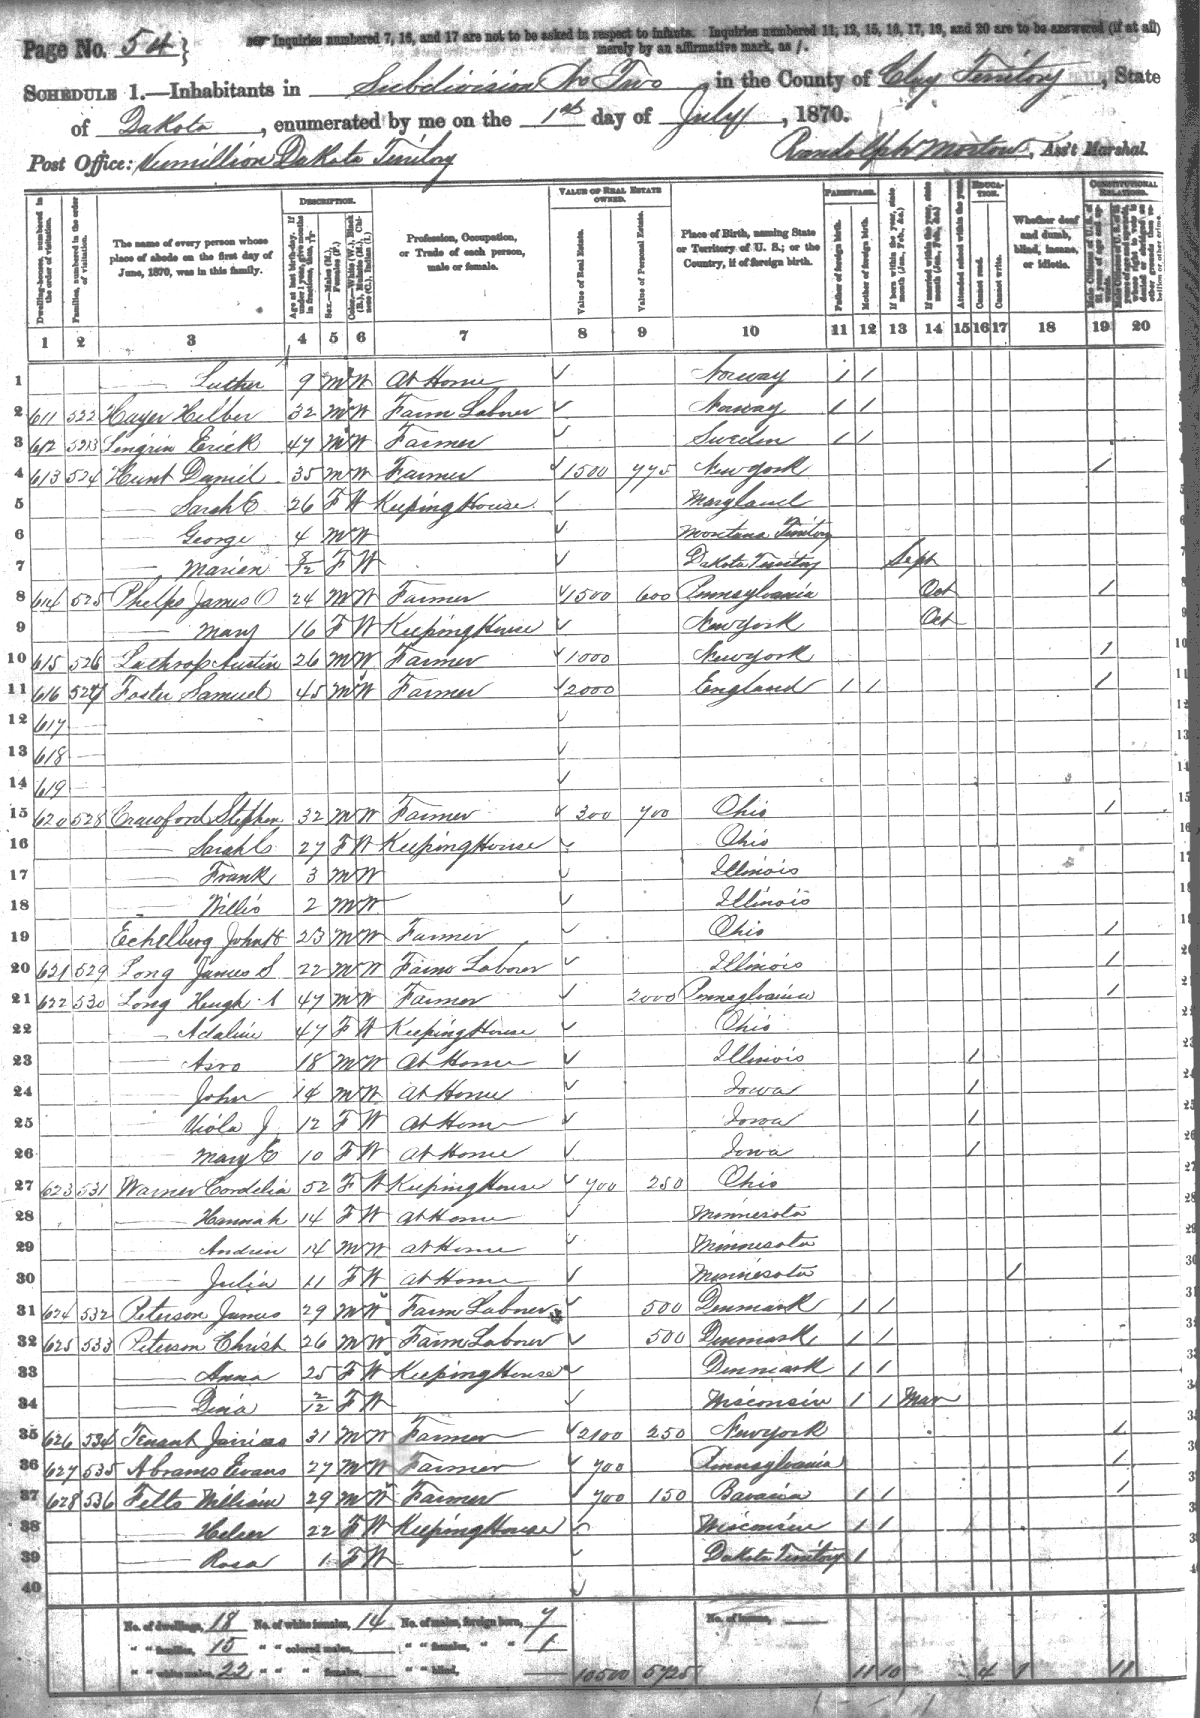 Page No. 54}
Inquiries numbered 7, 16, and 17 are not to be asked in respect to infants. Inquiries numbered 11, 12, 15, 16, 17, 19, and 20 are to be answered (if at all) merely by an affirmative mark, as /.
SCHEDULE 1.—Inhabitants in Subdivision No Two, in the County of Clay Territory, State
of Dakota, enumerated by me on the 1st day of July, 1870.
Post Office: Vermillion Dakota Territory Randolph Morton, Ass't Marshal.
DESCRIPTION. VALUE OF REAL ESTATE OWNED. PARENTAGE. EDUCATION. CONSTITUTIONAL RELATIONS.
Dwelling-houses, numbered in the order of visitation.
Families, numbered in the order of visitation.
The name of every person whose place of abode on the first day of June, 1870, was in this family.
Age at last birth-day. If under 1 year, give months in fractions, thus, 3/12
Sex.—Males (M.), Females (F.)
Color.—White (W.), Black (B.), Mulatto (M.), Chinese (C.), Indian (I.)
Profession, Occupation, or Trade of each person, male or female.
Value of Real Estate.
Value of Personal Estate.
Place of Birth, naming State or Territory of U. S.; or the Country, if of foreign birth.
Father of foreign birth.
Mother of foreign birth.
If born within the year, state month (Jan., Feb., &c.)
If married within the year, state month (Jan., Feb., &c.)
Attended school within the year.
Cannot read.
Cannot write.
Whether deaf and dumb, blind, insane, or idiotic.
1 2 3 4 5 6 7 8 9 10 11 12 13 14 15 16 17 18 19 20
1 — Luther 9 M W At Home ✓ Norway 1 1
2 611 522 Hayer Hilber 32 M W Farm Laborer ✓ Norway 1 1
3 612 523 Lingrin Erick 47 M W Farmer ✓ Sweden 1 1
4 613 524 Hunt Daniel 35 M W Farmer ✓ 1500 775 New York 1
5 — Sarah E 26 F W Keeping House ✓ Maryland
6 — George 4 M W ✓ Montana Territory
7 — Marien 8/12 F W ✓ Dakota Territory Sept
8 614 525 Phelps James O 24 M W Farmer ✓ 1500 600 Pennsylvania Oct 1
9 — Mary 16 F W Keeping House ✓ New York Oct
10 615 526 Lathrop Austin 26 M W Farmer ✓ 1000 New York 1
11 616 527 Foster Samuel 45 M W Farmer ✓ 2000 England 1 1 1
12 617 — ✓
13 618 — ✓
14 619 — ✓
15 620 528 Crawford Stephen 32 M W Farmer ✓ 300 700 Ohio 1
16 — Sarah C 27 F W Keeping House ✓ Ohio
17 — Frank 3 M W ✓ Illinois
18 — Willis 2 M W ✓ Illinois
19 Echelberg John H 23 M W Farmer ✓ Ohio 1
20 621 529 Long James S 22 M W Farm Laborer ✓ Illinois 1
21 622 530 Long Hugh A 47 M W Farmer ✓ 2000 Pennsylvania 1
22 — Adaline 47 F W Keeping House ✓ Ohio
23 — Asro 18 M W At Home ✓ Illinois 1
24 — John 14 M W At Home ✓ Iowa 1
25 — Viola J 12 F W At Home ✓ Iowa 1
26 — Mary E 10 F W At Home ✓ Iowa 1
27 623 531 Warner Cordelia 52 F W Keeping House ✓ 700 250 Ohio
28 — Hannah 14 F W At Home ✓ Minnesota
29 — Andrew 14 M W At Home ✓ Minnesota
30 — Julia 11 F W At Home ✓ Minnesota 1
31 624 532 Peterson James 29 M W Farm Laborer ✓ 500 Denmark 1 1
32 625 533 Peterson Christ 26 M W Farm Laborer ✓ 500 Denmark 1 1
33 — Anna 25 F W Keeping House ✓ Denmark 1 1
34 — Dina 2/12 F W ✓ Wisconsin 1 1 Mar
35 626 534 Tenant James 31 M W Farmer ✓ 2100 250 New York 1
36 627 535 Abrams Evans 27 M W Farmer ✓ 700 Pennsylvania 1
37 628 536 Felts William 29 M W Farmer ✓ 700 150 Bavaria 1 1 1
38 — Helen 22 F W Keeping House ✓ Wisconsin 1 1
39 — Rosa 1 F W ✓ Dakota Territory 1
40 ✓
No. of dwellings, 18 No. of white females, 14 No. of males, foreign born, 7 No. of insane, —
" " families, 15 " " colored males, — " " females, " " 1
" " white males, 22 " " " females, — " " blind, — 10500 5725 11 10 4 1 11